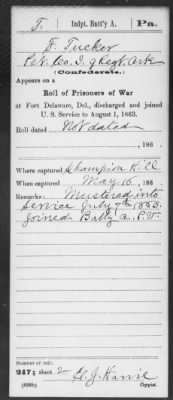 T | Indpt. Batt'y A. | Pa.
F. Tucker
Pvt. Co. D. 9 Regt. Ark
(Confederate.)
Appears on a
Roll of Prisoners of War
at Fort Delaware, Del., discharged and joined
U. S. Service to August 1, 1863.
Roll dated Not dated, 186 .
Where captured Champion Hill
When captured May 16, 186 .
Remarks: Mustered into
service July 7th 1863.
Joined Batty A. P.V.
Number of roll:
247; sheet 2
(639b) Copyist.